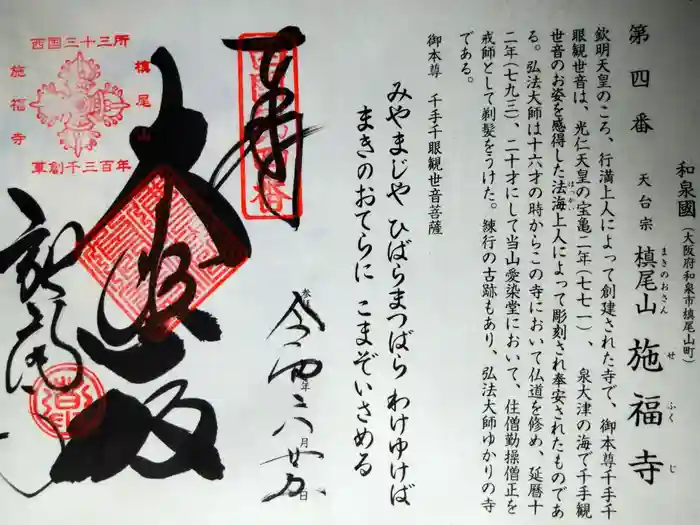 和泉國（大阪府和泉市槙尾山町）
第四番 天台宗 槙尾山 施福寺
まきのおさん せふくじ
欽明天皇のころ、行満上人によって創建された寺で、御本尊千手千
眼観世音は、光仁天皇の宝亀二年（七七一）、泉大津の海で千手観
世音のお姿を感得した法海上人によって彫刻され奉安されたものであ
ほっかい
る。弘法大師は十六才の時からこの寺において仏道を修め、延暦十
二年（七九三）、二十才にして当山愛染堂において、住僧勤操僧正を
戒師として剃髪をうけた。練行の古跡もあり、弘法大師ゆかりの寺
である。
御本尊 千手千眼観世音菩薩
みやまじや ひばらまつばら わけゆけば
まきのおてらに こまぞいさめる
奉拝
令和四年六月廿
大悲殿
西国三十三所
槙尾山
施福寺
草創千三百年